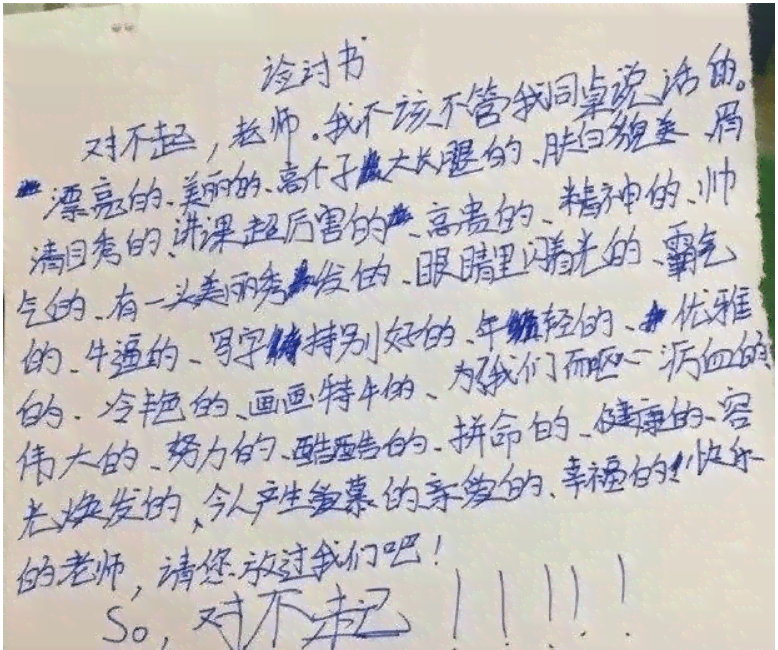 检讨书
对不起，老师。我不该不管我同桌说话的。
漂亮的、美丽的、高个子大长腿的、肤白貌美、眉
清目秀的、讲课超厉害的、高贵的、精神的、帅
气的、有一头美丽秀发的、眼睛里闪着光的、霸气
的、牛逼的、写字持别好的、年轻的、优雅
的、冷艳的、画画特牛的、为了我们而呕心沥血的
伟大的、努力的、酷酷的、拼命的、健康的、容
光焕发的、今人产生羡慕的亲爱的、幸福的、快乐
的老师，请您放过我们吧！
So，对不起！！！！！